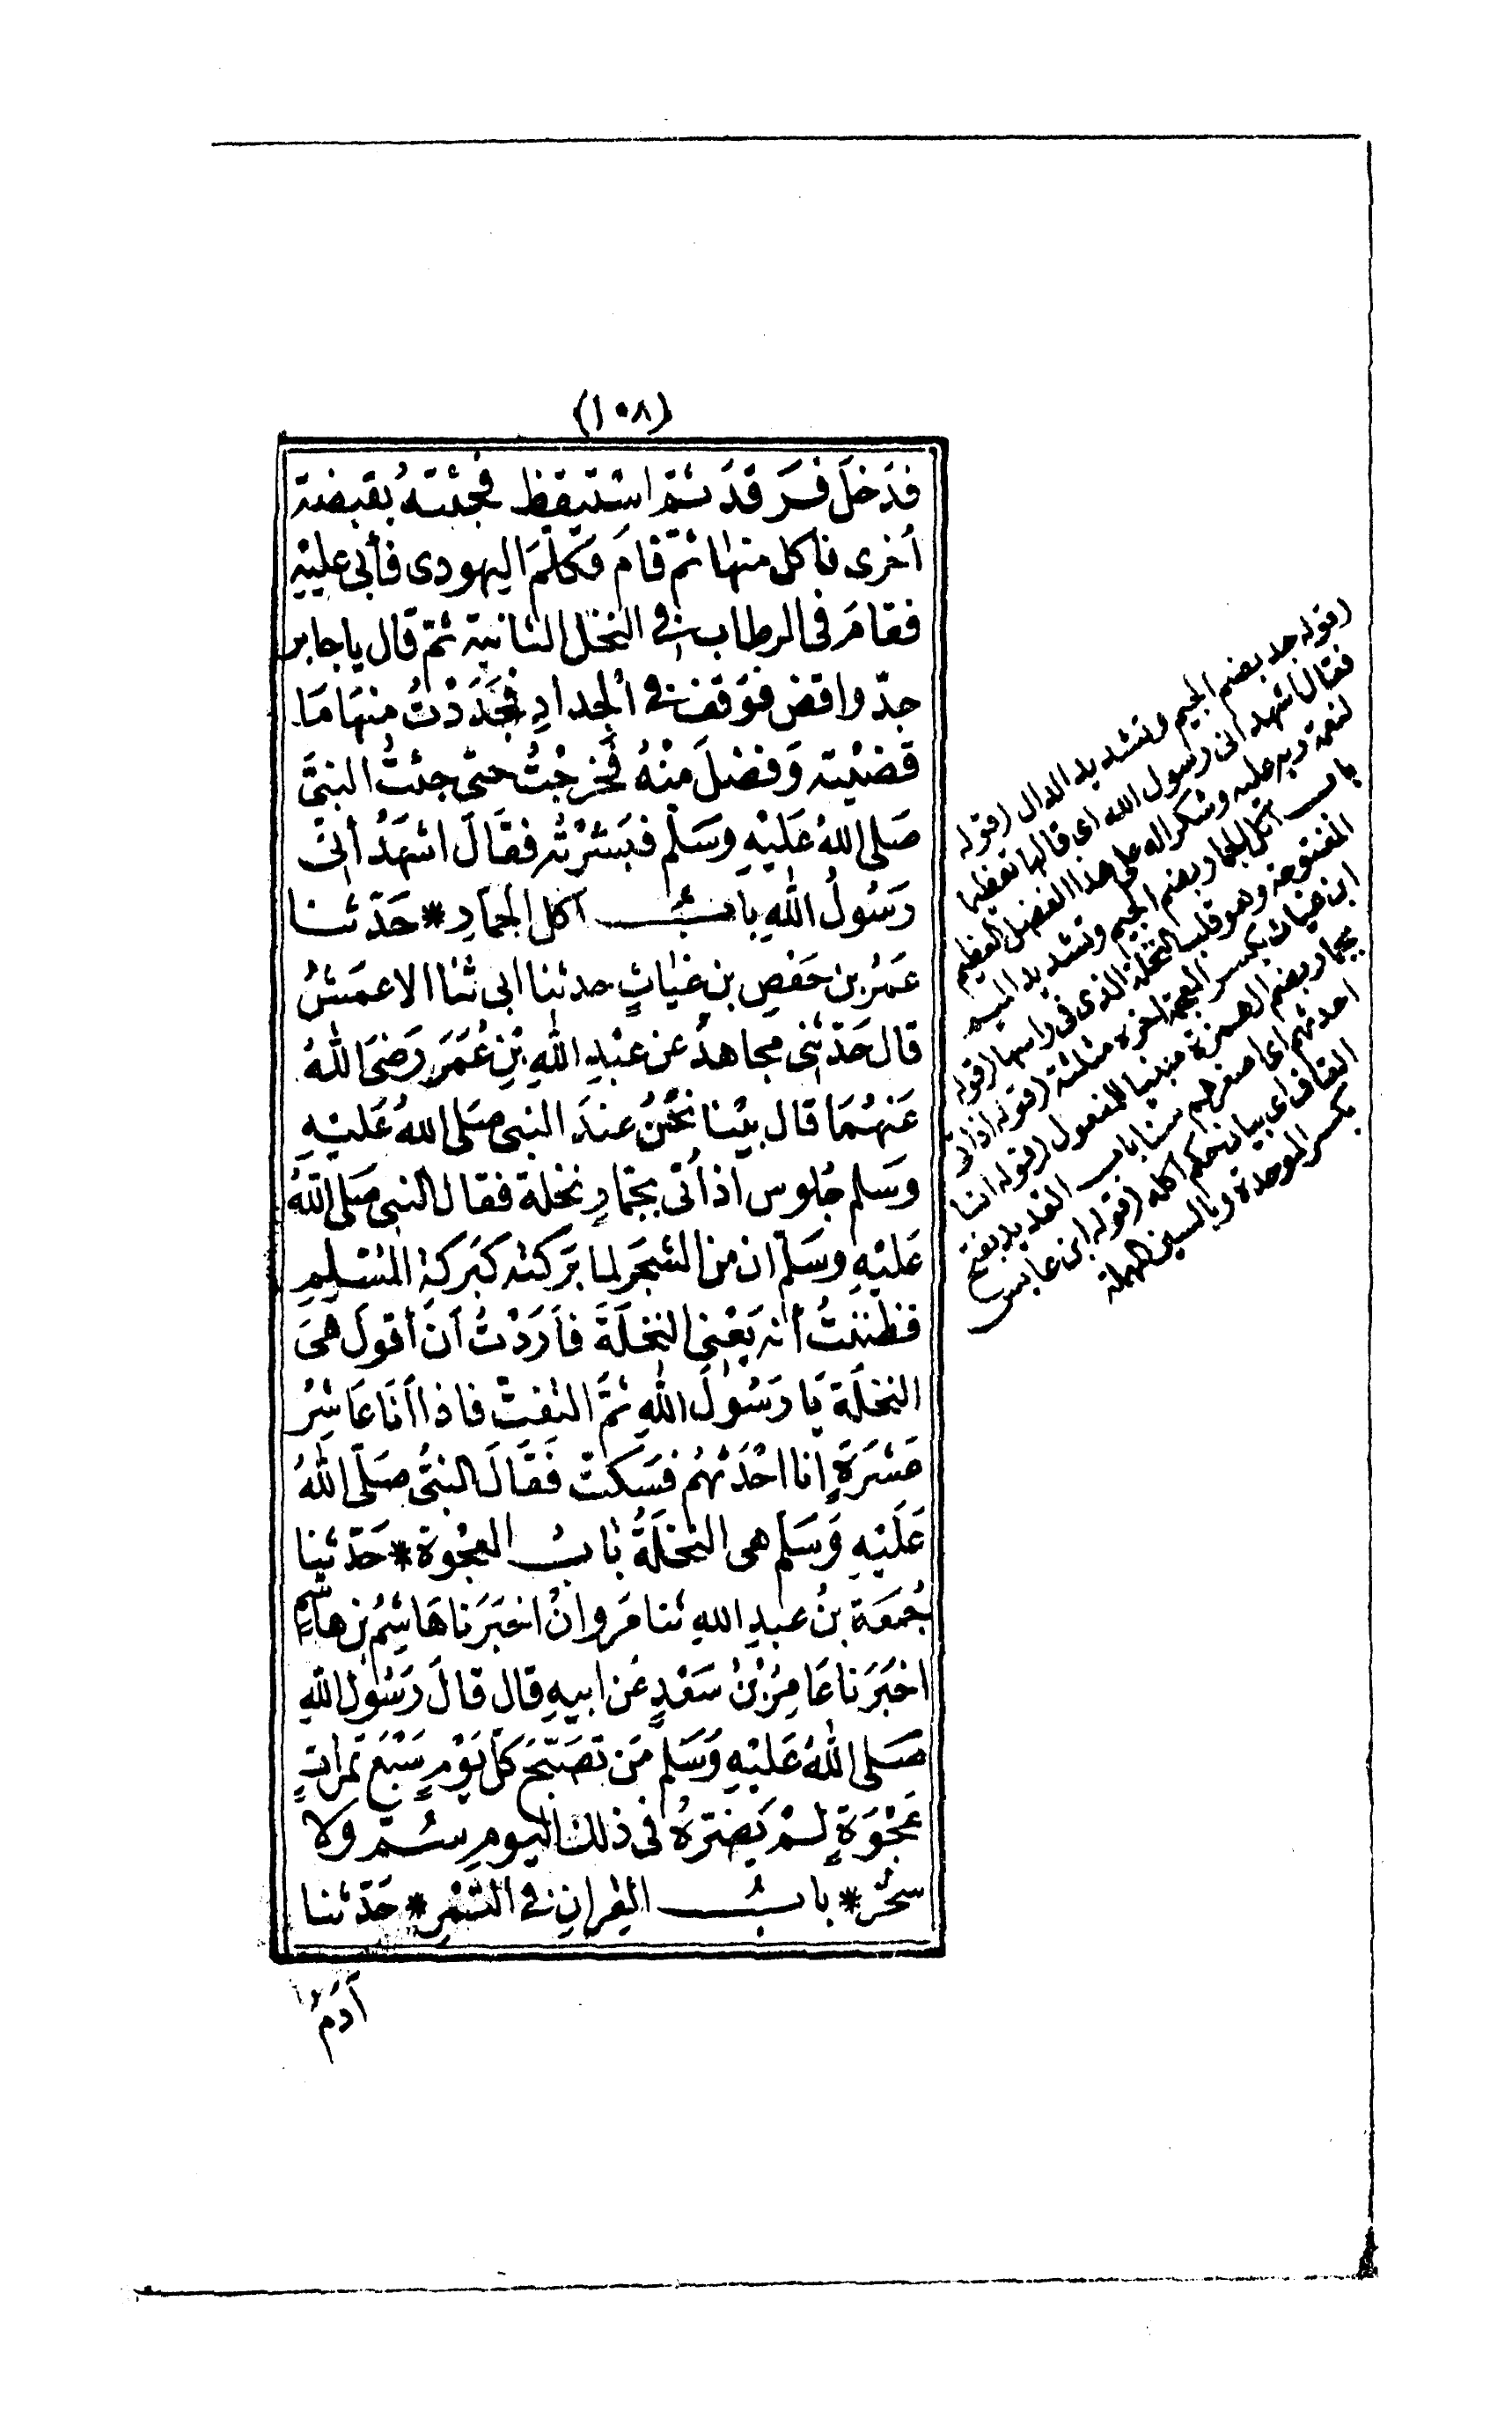 (١٠٨)
فدَخلَ فرَقدَ ثمّ اسْتيقظ فجئتهُ بقبضة
أخرى فأكل منها ثمّ قامَ فكلمَ اليهودى فأبى عليْهِ
فقامَ فى الرطاب فى النخل الثانية ثمّ قال يا جابر
جدّ واقض فوَقف فى الْجدادِ فجَدَدْتُ منهَا مَا
قضيْته وَفضلَ منْهُ فخرجْتُ حتى جئتُ النبىَّ
صَلى اللهُ عَلَيْهِ وسَلم فبَشرْتُه فقالَ اشهَدُ أنى
رَسُولُ اللهِ بابُ أكل الجمّارِ * حَدّثنا
عمَرُ بن حَفصِ بن غيَاثٍ حدثنا ابى ثنا الاعمَشُ
قال حَدّثنى مجاهدُ عن عَبْدِ اللهِ بْنِ عُمَرَ رَضىَ اللهُ
عَنهُمَا قال بيْنا نحْنُ عندَ النبى صَلى اللهُ عَليْهِ
وسَلم جُلوس اذ أتى بجمّارِ نخلة فقال النبى صَلى اللهُ
عَليْهِ وسَلمّ ان من الشجَر لما بَركته كبَركةِ المُسْلِمِ
فظننتُ أنه يَعْنى النخلَةَ فأرَدْتُ أنْ أقولَ هىَ
النخلَة يَا رَسُولَ اللهِ ثمَّ التفتّ فاذا أنَا عَاشِرُ
عَشرَةٍ انا احْدَثهُم فسَكتّ فَقالَ النبىُّ صَلّى اللهُ
عَلَيْهِ وَسَلم هى النّخلَةُ بابُ العجْوَة * حَدّثنا
جُمعَة بنُ عبدِ اللهِ ثنا مَروانُ اخبَرَنا هَاشِمُ بن هاشمٍ
اخبَرَنا عَامِرُ بْنُ سَعْدٍ عَن ابيهِ قال قالَ رَسُولُ اللهِ
صَلى اللهُ عَليْهِ وَسَلم مَن تصَبّحَ كلّ يَوْمٍ سَبْعَ تمرَاتٍ
عَجْوَةٍ لَمْ يَضرّهُ فى ذلك اليومِ سُمّ وَلا
سحْر * بابُ القِرانِ فى التّمْرِ * حَدّثنا
آدَمُ
(قوله جد بضم الجيم وتشديد الدال (قوله
فقال اشهد انى رسول الله اى قالها تعظيما
لنعمة ربه عليه وشكرا له على هذا الفضل العظيم
باب اكل الجمار بضم الجيم وتشديد الميم
المفتوحة وهو قلب النخلة الذى فى راسها (قوله
ابن غياث بكسر المعجمة اخره مثلثة (قوله اذ اتى
بجمار بضم الهمزة مبنيا للمفعول (قوله انا
احدثهم اى اصغرهم سنا باب القديد بفتح
القاف اى بيان حكم اكله (قوله ابن عابس
بكسر الموحدة وبالسين المهملة